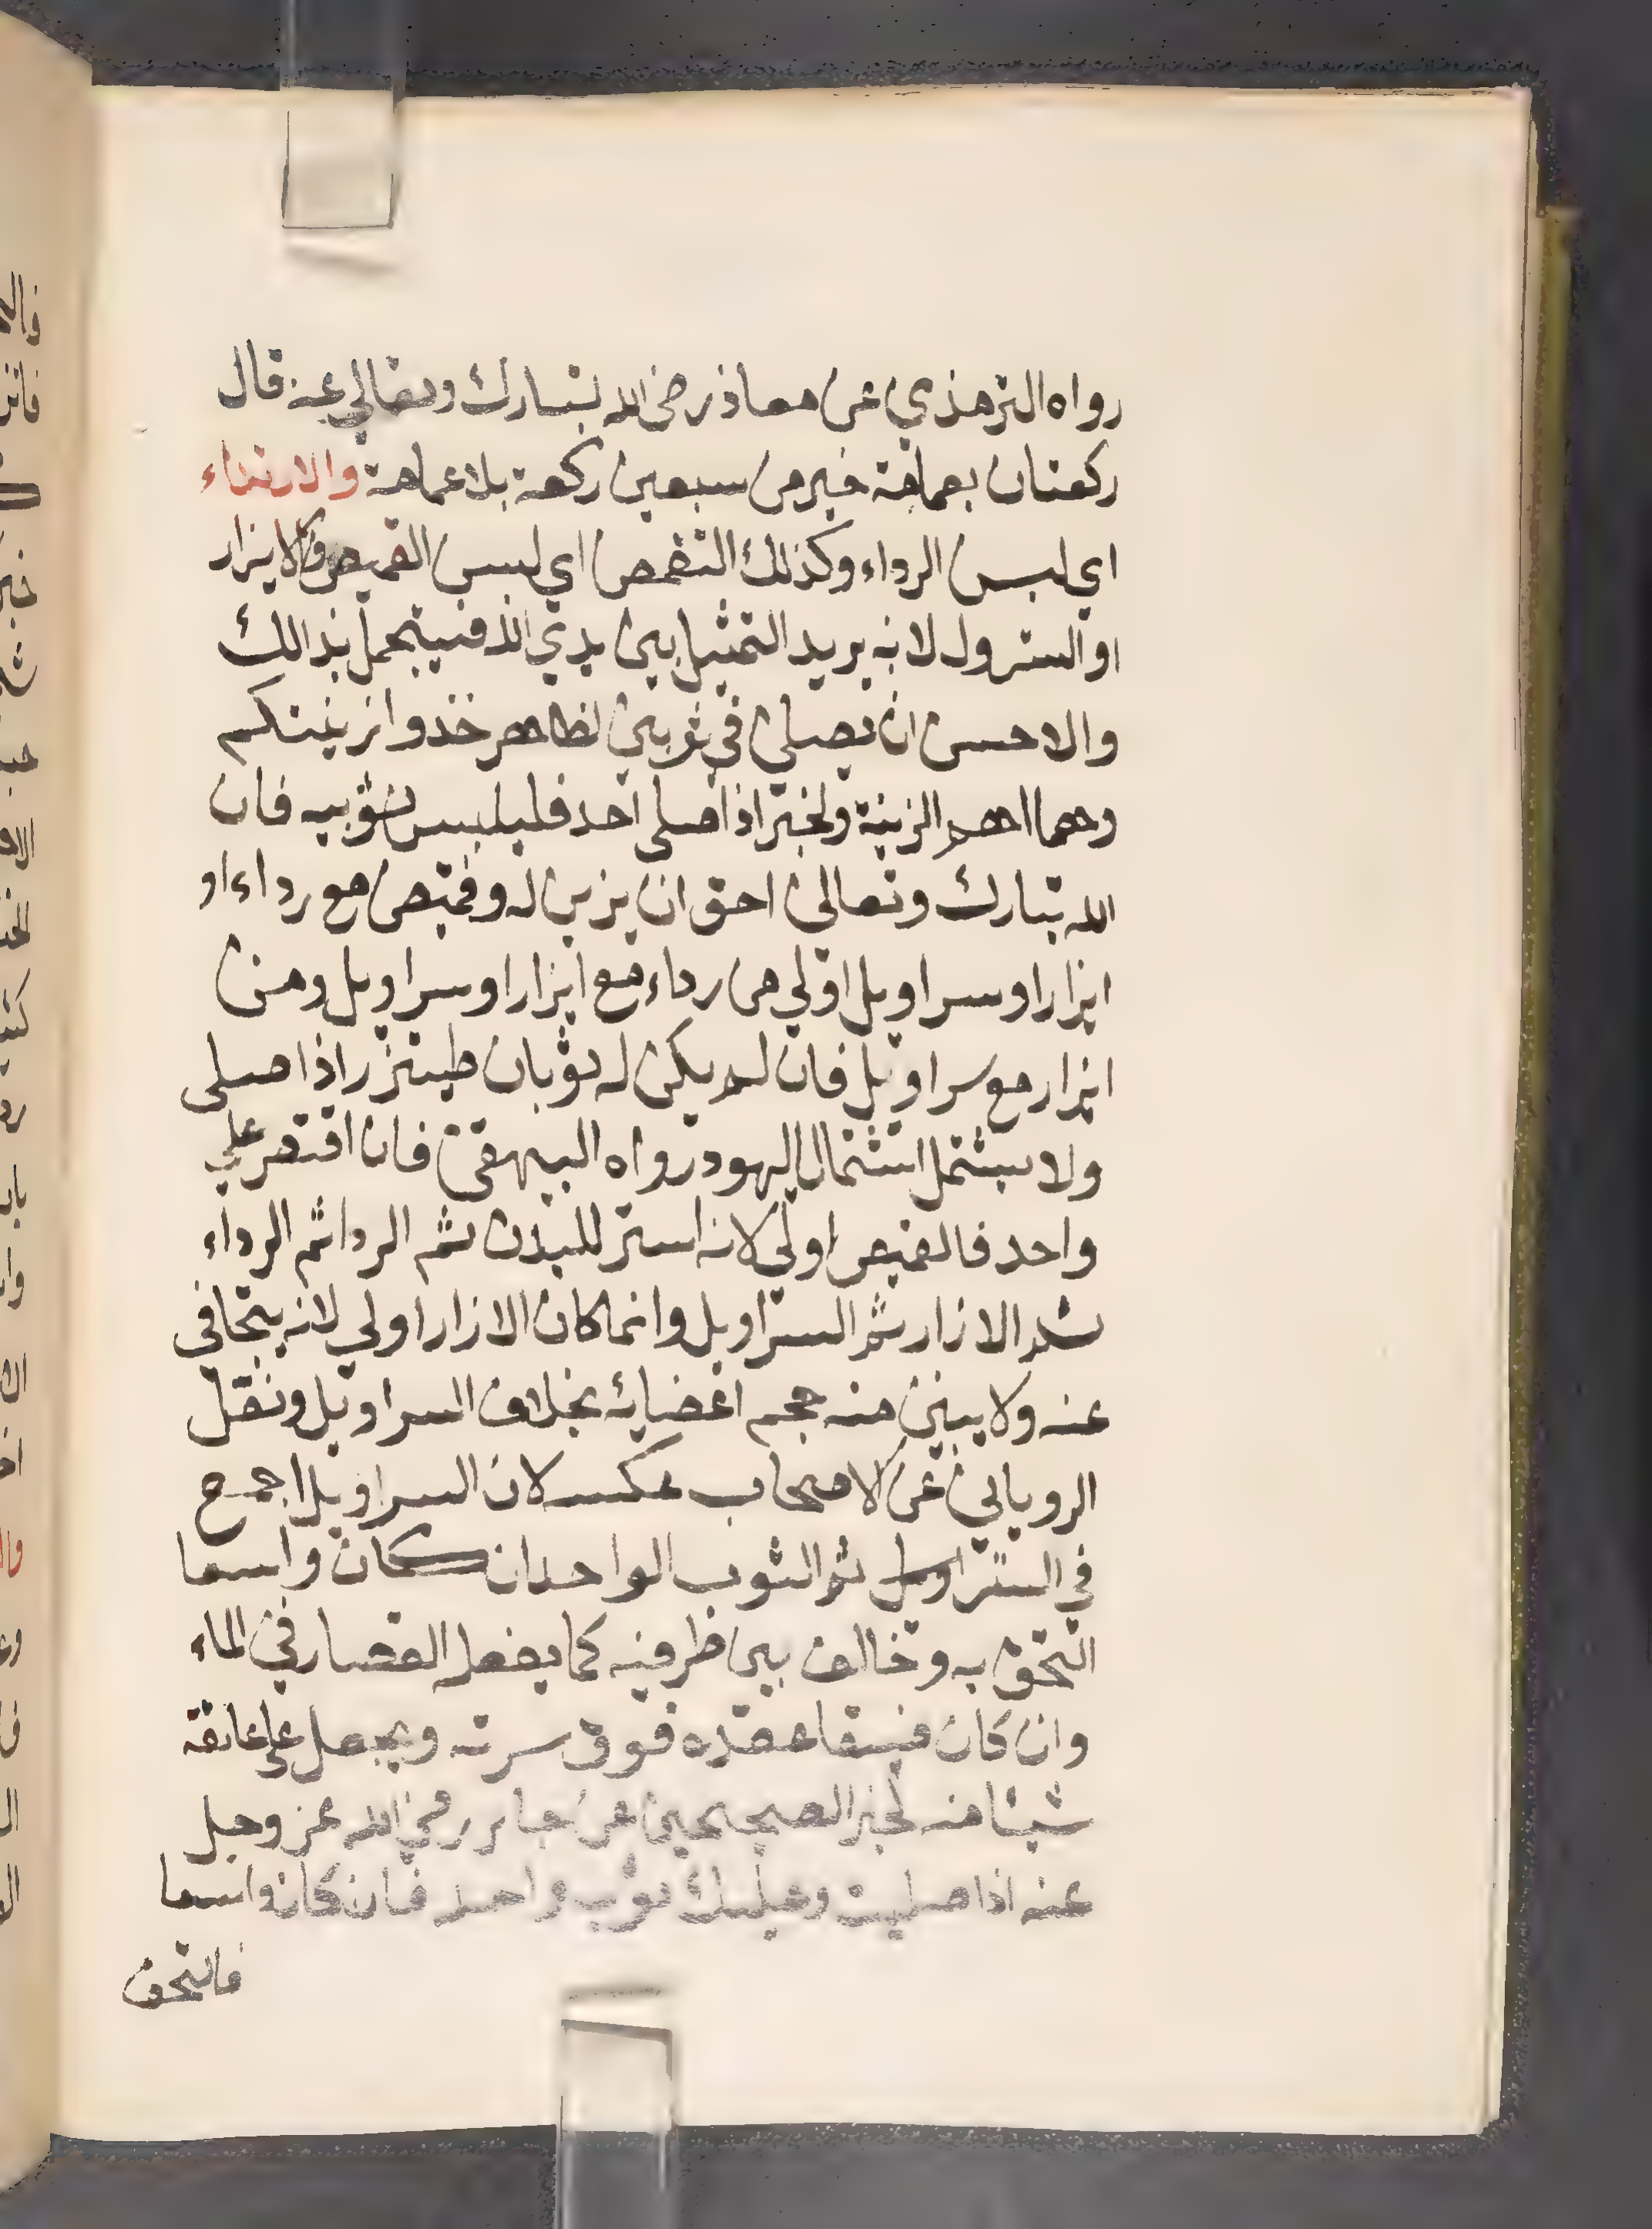 رواه الترمذي عن معاذ رضى الله تبارك وتعالي عنه قال
ركعتان بعمامة خير من سبعين ركعة بلا عمامة والارتداء
اي لبس الرداء وكذلك التقمص اي لبس القميص والايزار
او التسرول لانه يريد التمثيل بين يدي الله فيتجمل بذالك
والاحسن ان يصلي في ثوبين لظاهر خذوا زينتكم
وهما اهم الزينة ولخبر اذا صلى احد فليلبس ثوبيه فان
الله تبارك وتعالى احق ان يزين له وقميص مع رداء او
ايزار او سراويل اولي من رداء مع ايزار او سراويل ومن
ايزار مع سراويل فان لم يكن له ثوبان فليتزر اذا صلى
ولا يشتمل اشتمال اليهود رواه البيهقي فان اقتصر علي
واحد فالقميص اولي لانه استر للبدن ثم الردا ثم الرداء
ثم الازار ثم السراويل وانما كان الازار اولي لانه يتجافي
عنه ولا يبين منه حجم اعضائه بخلاف السراويل ونقل
الروياني عن الاصحاب عكسه لان السراويل اجمع
في الستر اويل ثم الثوب الواحد ان كان واسعا
التحف به وخالف بين طرفيه كما يفعل القصار في الماء
وان كان ضيقا عقده فوق سرته ويجعل على عاتقه
شيئا منه لخبر الصحيحين عن جابر رضي الله عز وجل
عنه اذا صليت وعليك ثوب واحد فان كان واسعا
فالتحف